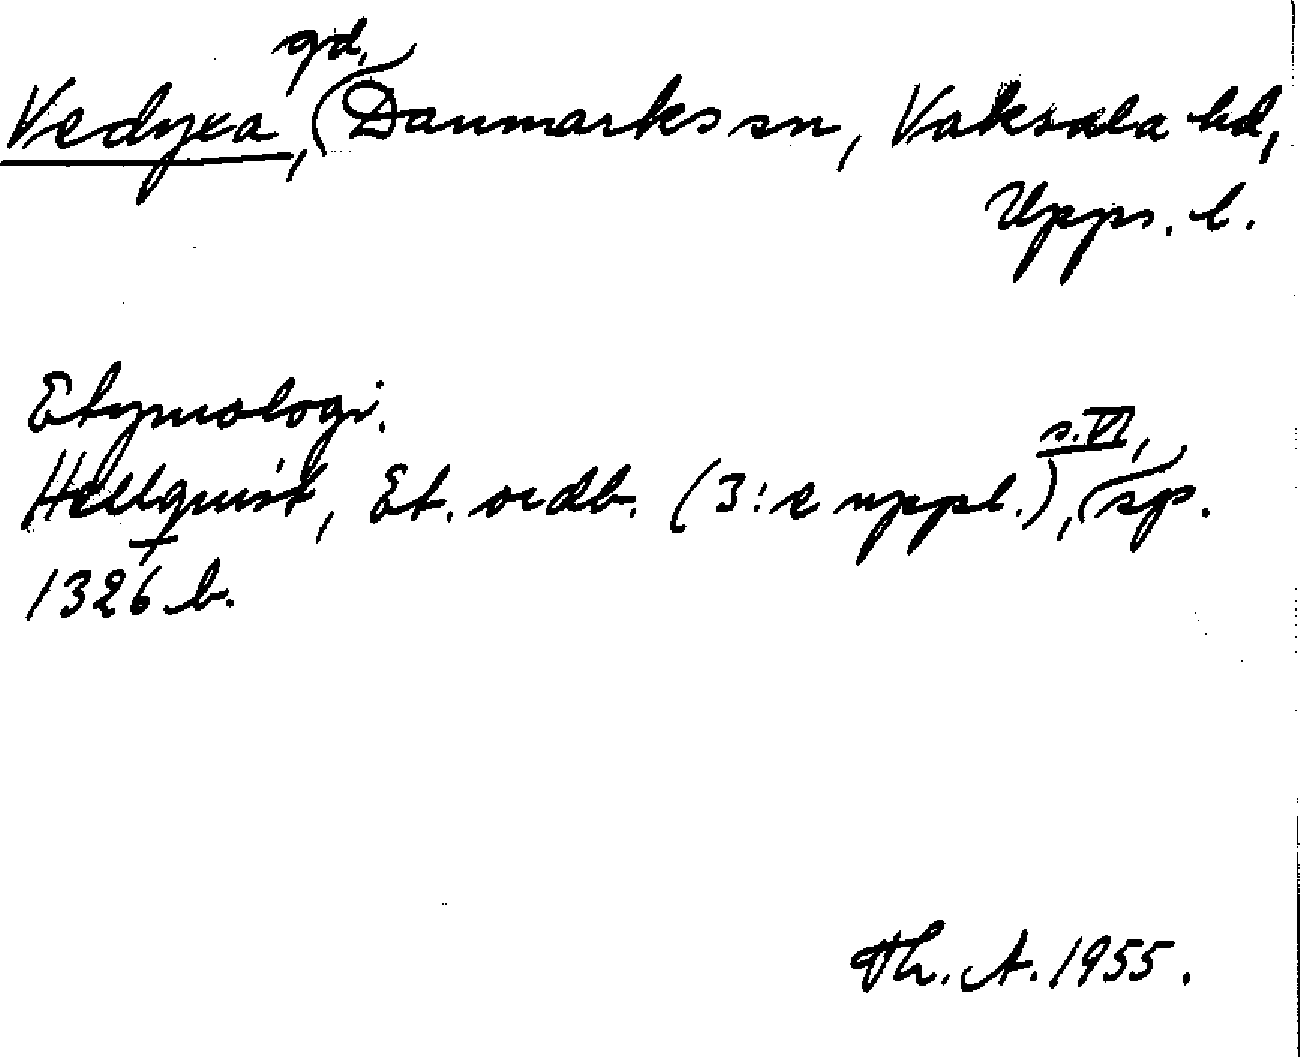 Vedyxa, gd, Danmarks sn, Vaksala hd,
Upps. l.
Etymologi.
Hellquist, Et. ordb. (3:e uppl.), s. VI, sp.
1326 b.
Th. A. 1955.